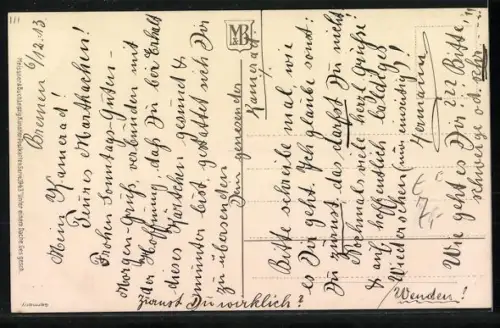 Bremen 6/12.13.
Mein Kamerad!
Teures Marthachen!
Frohen Sonntags-Guten-
Morgen-Gruß, verbunden mit
der Hoffnung, daß Du bei Erhalt
dieses Kärtchen gesund &
munter bist, gestattet sich Dir
zu übersenden
Dein
Kamerad.
Zürnst Du wirklich?
MB
Bitte schreibe mal, wie
es Dir geht. Ich glaube sonst:
Du zürnst, das darfst Du nicht!
Nochmals viele herzl. Grüße
& auf hoffentlich baldiges
Wiedersehen
Hermann
Wie geht es Dir ??? Bitte,
schweige
Wenden!